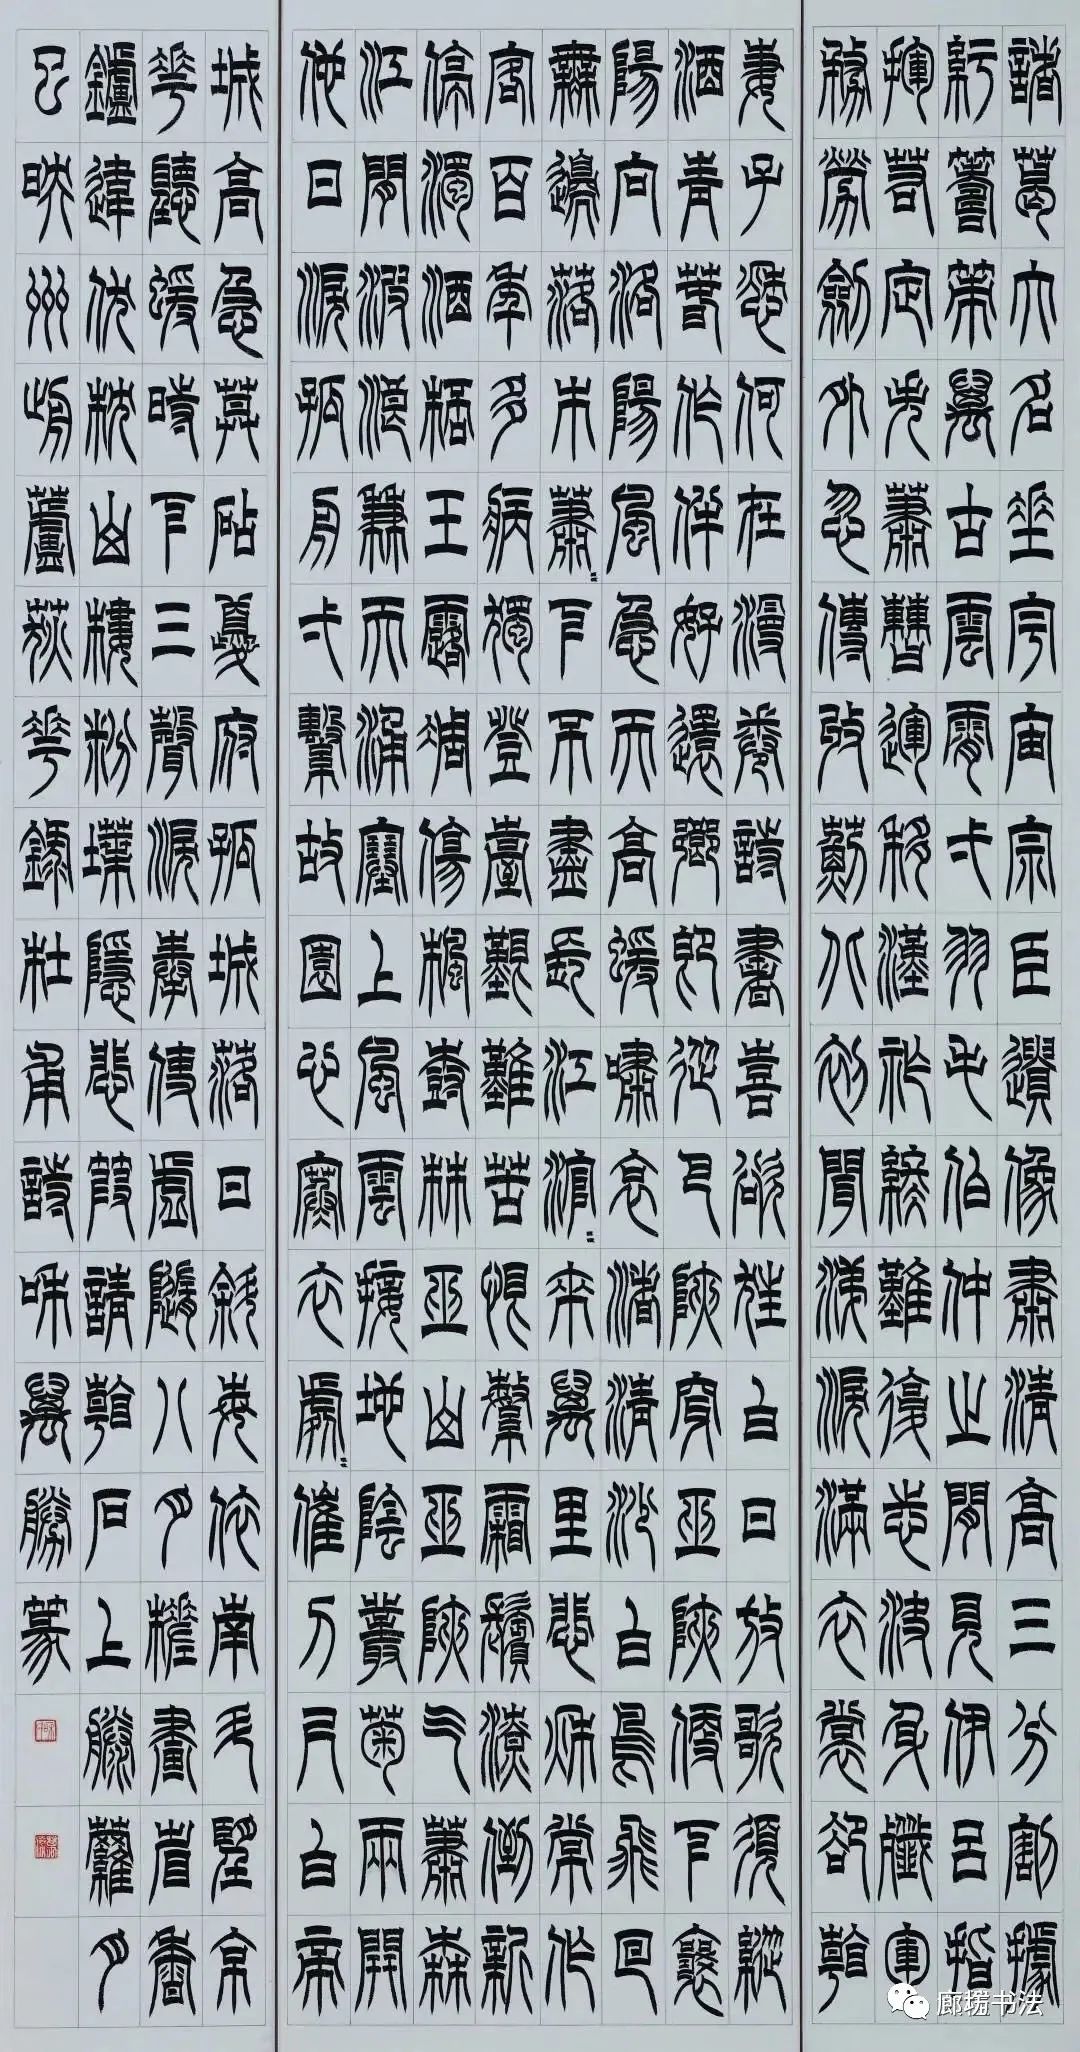 諸葛大名垂宇宙宗臣遺像肅清高三分割據
紆籌策萬古雲霄一羽毛伯仲之間見伊呂指
揮若定失蕭曹運移漢祚終難復志決身殲軍
務勞劍外忽傳收薊北初聞涕淚滿衣裳卻看
妻子愁何在漫卷詩書喜欲狂白日放歌須縱
酒青春作伴好還鄉即從巴峽穿巫峽便下襄
陽向洛陽風急天高猿嘯哀渚清沙白鳥飛回
無邊落木蕭〻下不盡長江滾〻來萬里悲秋常作
客百年多病獨登臺艱難苦恨繁霜鬢潦倒新
停濁酒杯玉露凋傷楓樹林巫山巫峽氣蕭森
江間波浪兼天湧塞上風雲接地陰叢菊兩開
他日淚孤舟一繫故園心寒衣處〻催刀尺白帝
城高急暮砧夔府孤城落日斜每依南斗望京
華聽猿時下三聲淚奉使虛隨八月槎畫省香
爐違伏枕山樓粉堞隱悲笳請看石上藤蘿月
已映洲前蘆荻花錄杜甫詩和萬勝篆
廊墿书法